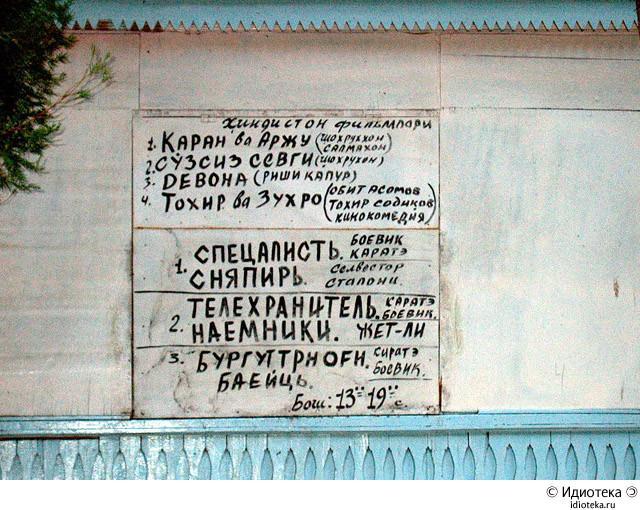 Хиндистон фильмлари
1. Каран ва Аржу (шохруххон)
салмахон)
2. Сўзсиз севги (шохрухон)
3. Девона (Риши капур)
4. Тохир ва Зухро (обит асомов
тохир содиқов
кинокомедия)
1. СПЕЦАЛИСТЬ. БОЕВИК
КАРАТЭ
СНЯПИРЬ. Селвестор
Сталони.
2. ТЕЛЕХРАНИТЕЛЬ. КАРАТЭ
БОЕВИК.
НАЕМНИКИ. ЖЕТ-ЛИ
3. БУРГУТТРНОҒИ. СИРАТЭ
БОЕВИК.
БАЕЙЦЬ.
Бош: 13°° 19°° с.
© Идиотека
idioteka.ru